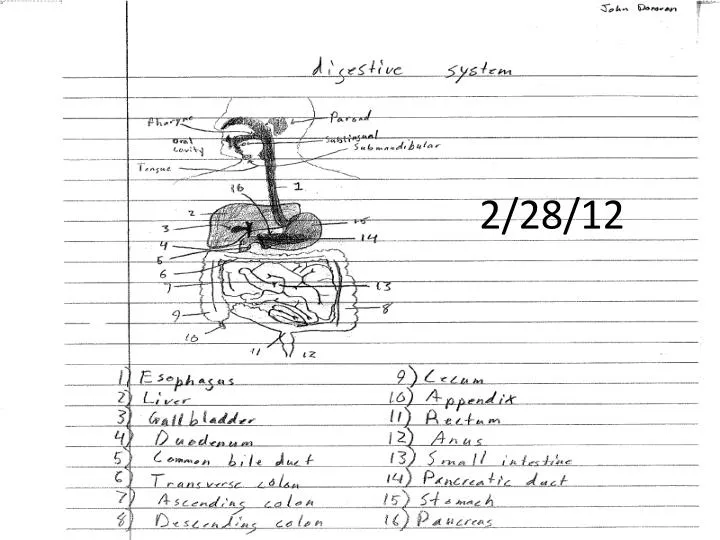 John Donovan
digestive system
Pharynx
Parond
Oral
cavity
Sublingual
Submandibular
Tongue
16
1
2
3
15
14
4
5
6
7
13
8
9
10
11
12
2/28/12
1) Esophagus
2) Liver
3) Gallbladder
4) Duodenum
5) Common bile duct
6) Transverse colon
7) Ascending colon
8) Descending colon
9) Cecum
10) Appendix
11) Rectum
12) Anus
13) Small intestine
14) Pancreatic duct
15) Stomach
16) Pancreas